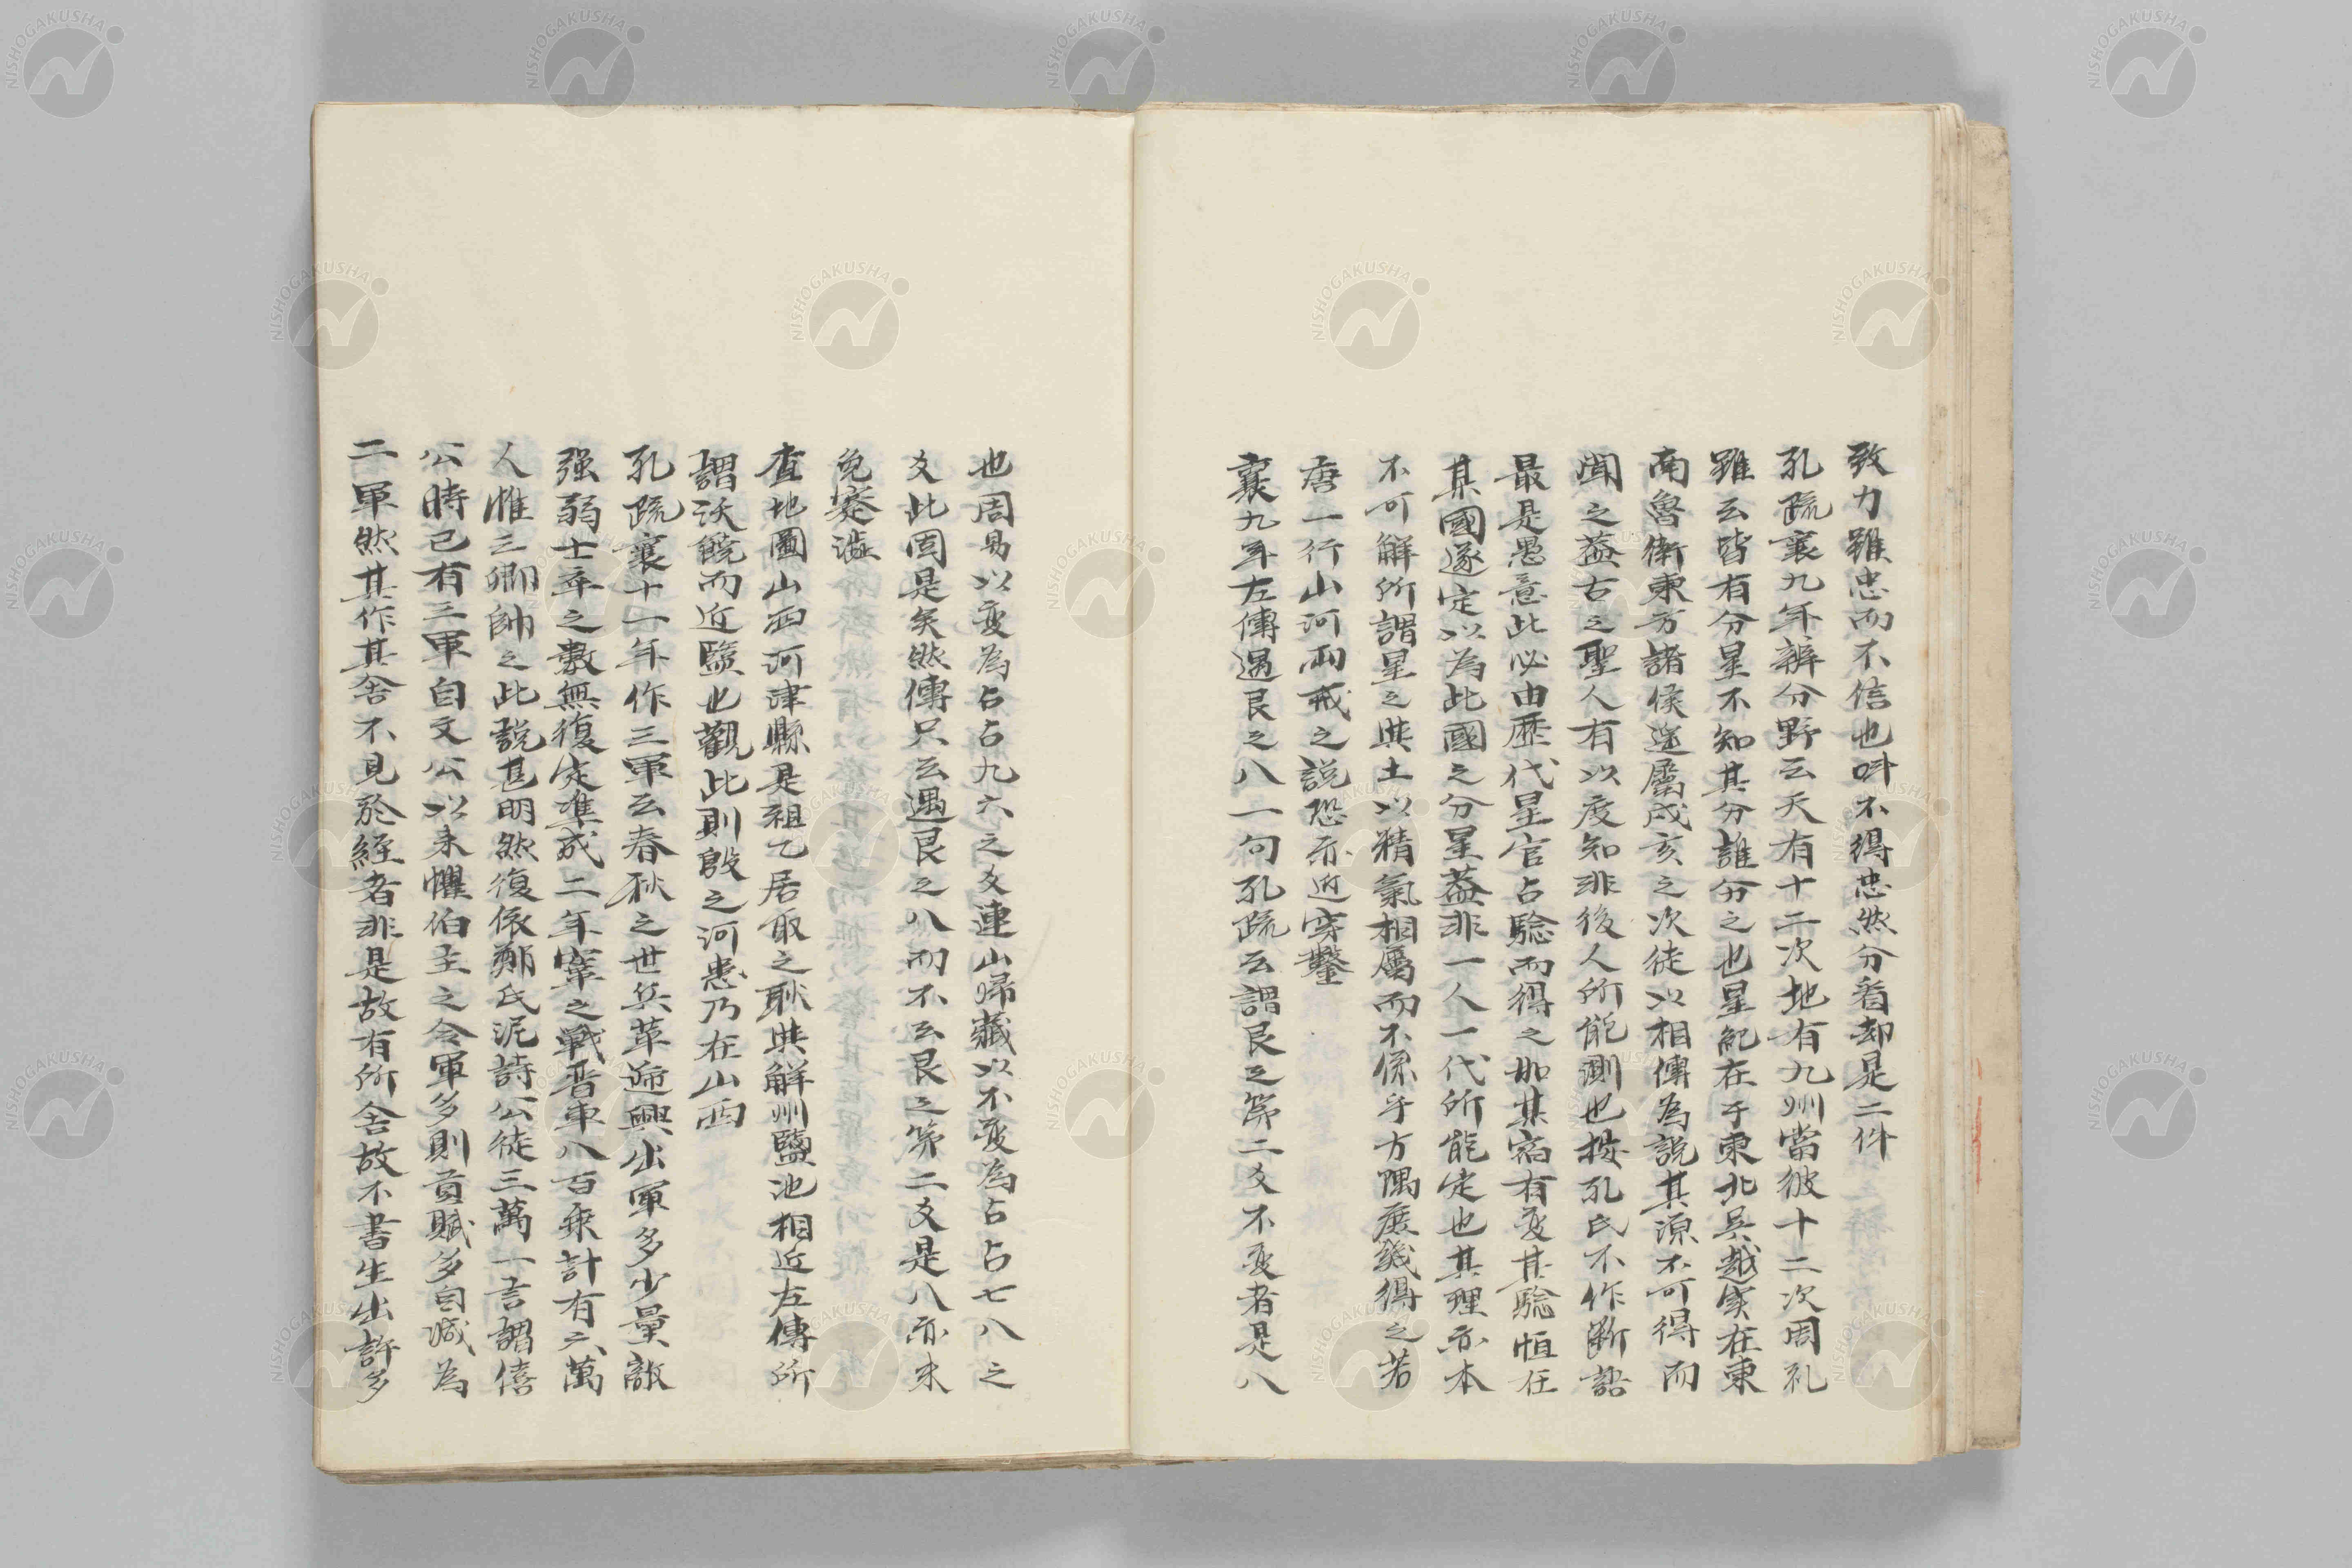 致力雖忠而不信也時不得忠然分看却是二件
孔疏襄九年辨分野云天有十二次地有九州當彼十二次周礼
雖云皆有分星不知其分誰分之也星紀在于東北吳越実在東
南魯衛東方諸侯遥屬戌亥之次徒以相傳為説其源不可得而
聞之蓋古之聖人有以度知非後人所能測也按孔氏不作断語
最是愚意此必由歴代星官占驗而得之如某宿有変其驗恒在
某國遂定以為此國之分星蓋非一人一代所能定也其理亦本
不可解所謂星之與土以精氣相屬而不係乎方隅庶幾得之若
唐一行山河兩戒之説恐亦近穿鑿
襄九年左傳遇艮之八一句孔疏云謂艮之第二爻不変者是八
也周易以変為占占九六之爻連山歸藏以不変為占占七八之
爻此固是矣然傳只云遇艮之八而不云艮之第二爻是八亦未
免蹇澁
查地圖山西河津縣是祖乙居耿之耿與解州鹽池相近左傳所
謂沃饒而近鹽也觀此則殷之河患乃在山西
孔疏襄十一年作三軍云春秋之世兵革逓興出軍多少量敵
强弱士卒之數無復定準成二年鞌之戦晋車八百乘計有六萬
人惟三卿帥之此説甚明然復依鄭氏泥詩公徒三萬一言謂僖
公時已有三軍自文公以来懼伯主之令軍多則貢賦多自減為
二軍然其作其舍不見於經者非是故有所舍故不書生出許多